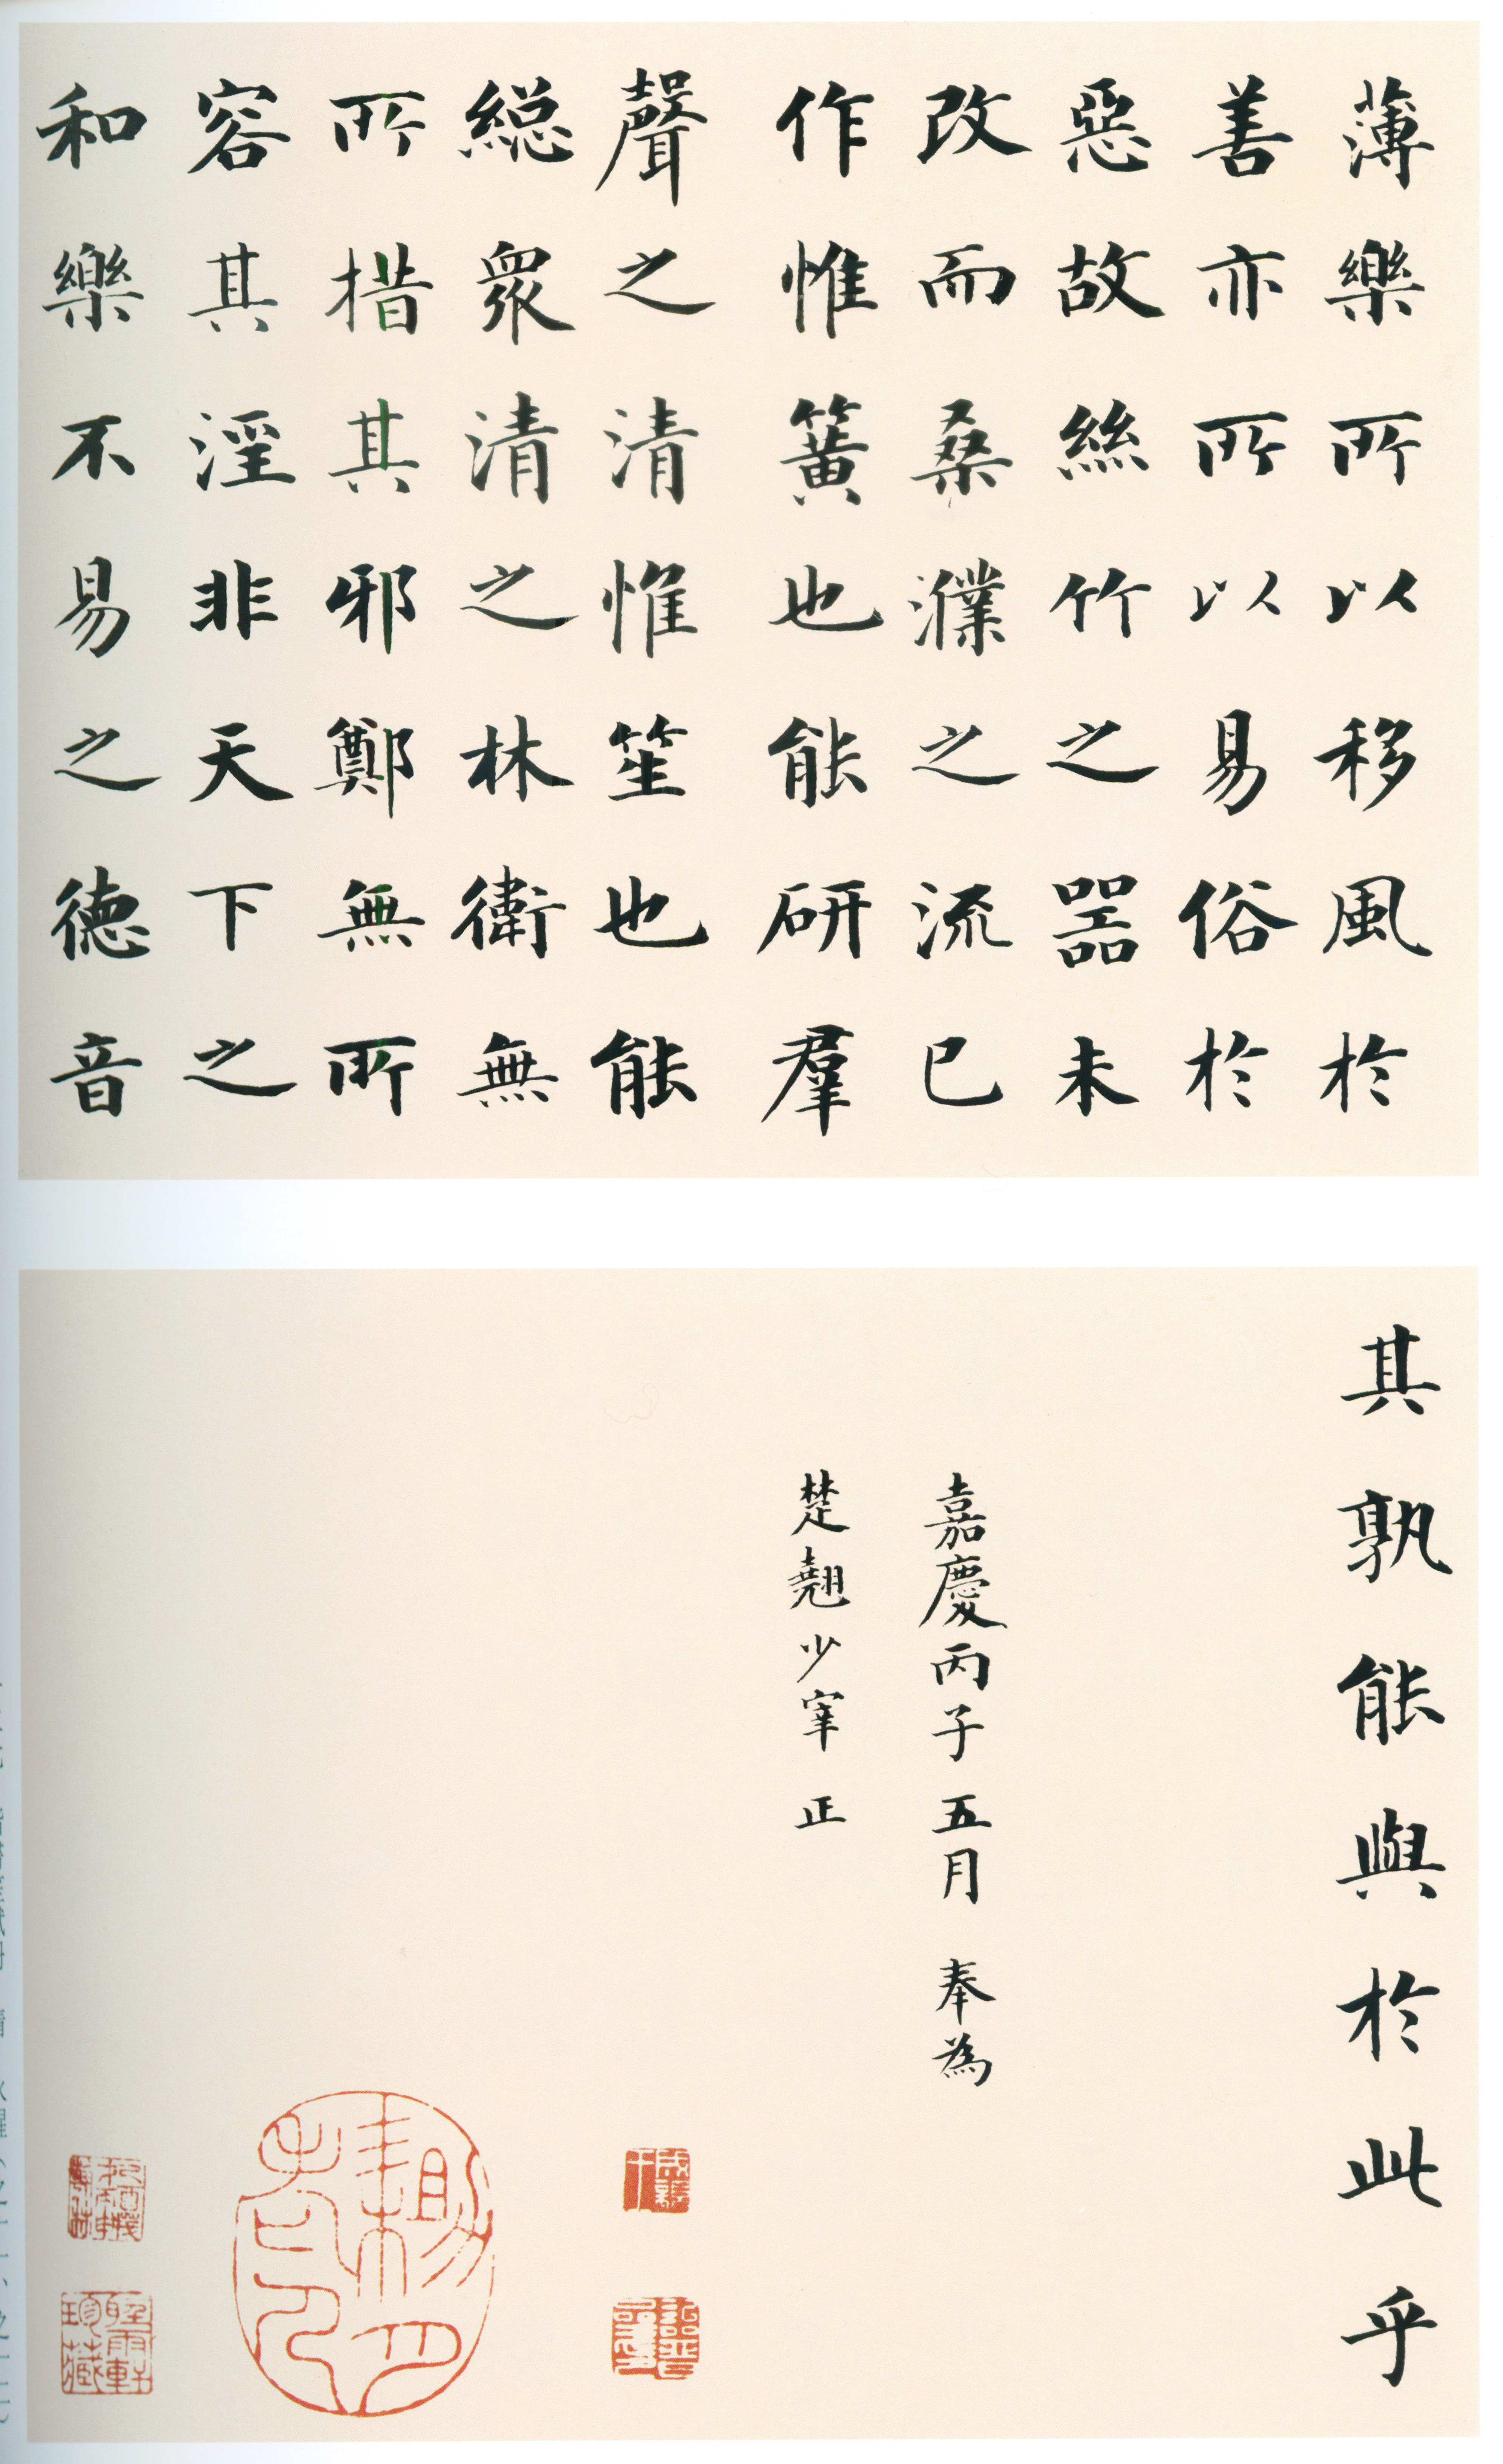 薄樂所以移風於
善亦所以易俗於
惡故絲竹之器未
改而桑濮之流已
作惟簧也能研羣
聲之清惟笙也能
総衆清之林衛無
所措其邪鄭無所
容其淫非天下之
和樂不易之德音
其孰能與於此乎
嘉慶丙子五月 奉為
楚翹少宰 正